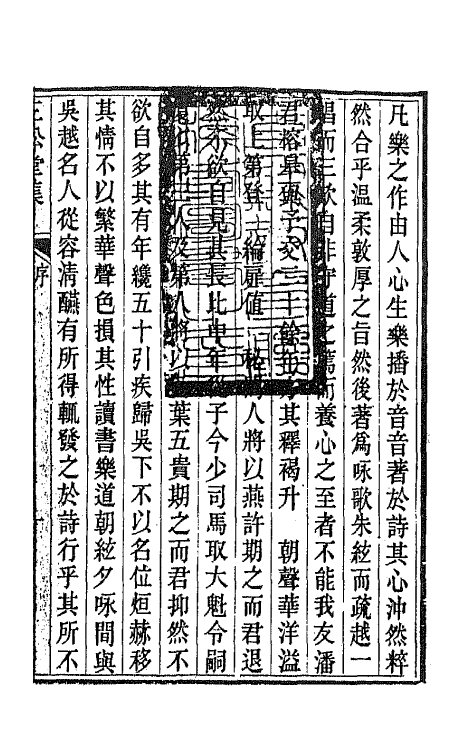 凡樂之作由人心生樂播於音音著於詩其心沖然粹
然合乎溫柔敦厚之旨然後著爲咏歌朱絃而疏越一
唱而三歎自非守道之篤而養心之至者不能我友潘
君榕臯與予交三十餘年其釋褐升 朝聲華洋溢
取上第登 綸扉值 人將以燕許期之而君退
然不欲自見其長比中年 子今少司馬取大魁令嗣
第三人及第人將以 葉五貴期之而君抑然不
欲自多其有年纔五十引疾歸吳下不以名位烜赫移
其情不以繁華聲色損其性讀書樂道朝絃夕咏間與
吳越名人從容清醼有所得輒發之於詩行乎其所不
三松堂集 序